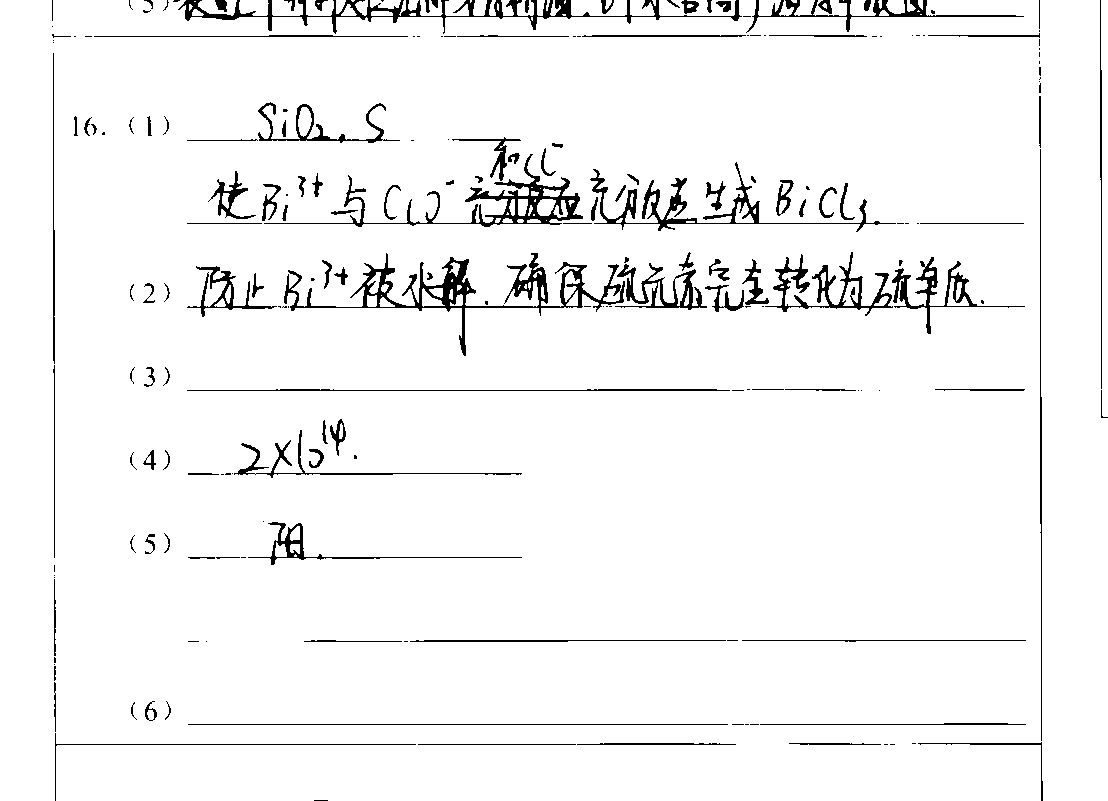 16.（1） SiO₂, S
和Cl⁻
使Bi³⁺与ClO⁻充分反应生成BiCl₃.
（2）防止Bi³⁺被水解. 确保硫元素完全转化为硫单质.
（3）
（4） 2×10¹⁴.
（5） 阳.
（6）